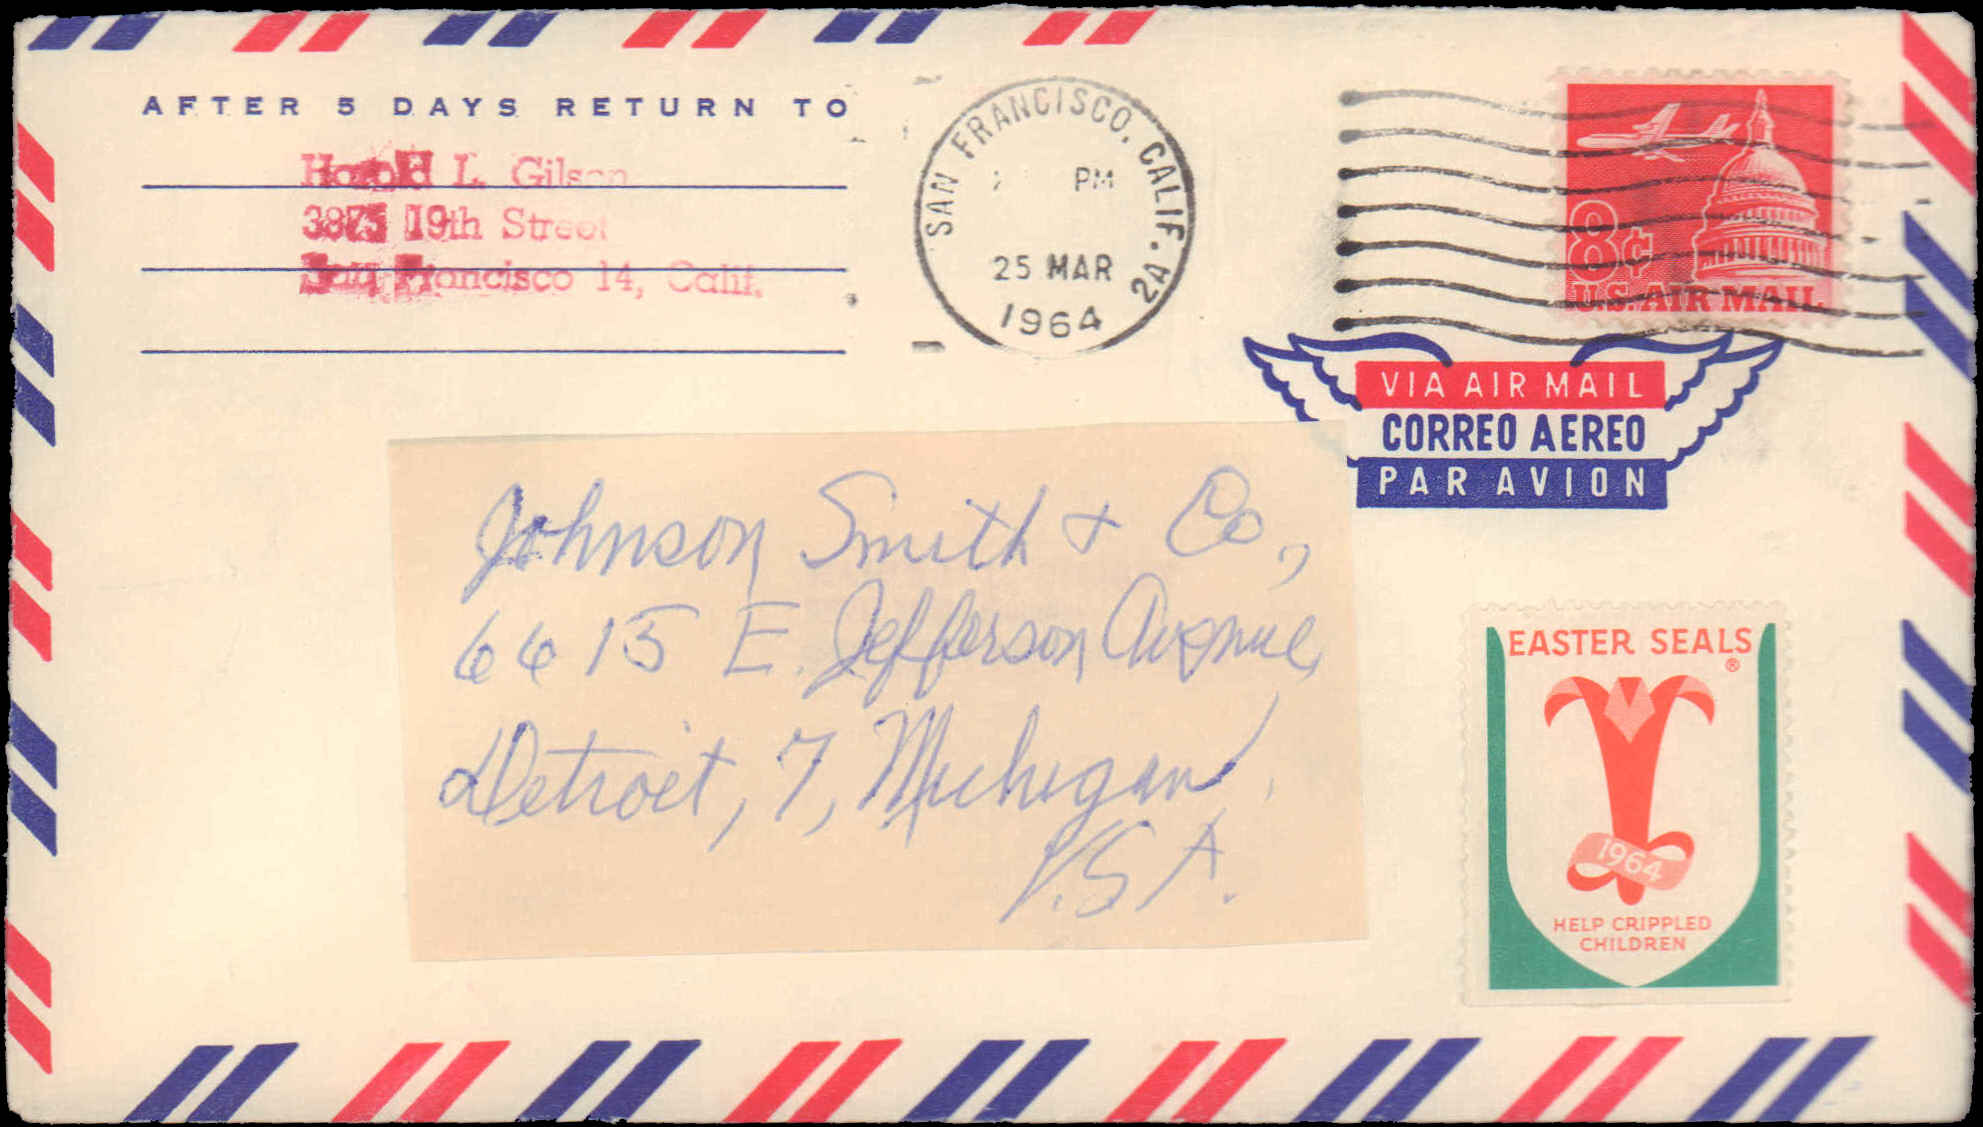 AFTER 5 DAYS RETURN TO
Harold L. Gilson
3875 19th Street
San Francisco 14, Calif.
SAN FRANCISCO, CALIF. 2A
PM
25 MAR
1964
8¢
U.S. AIR MAIL
VIA AIR MAIL
CORREO AEREO
PAR AVION
Johnson Smith & Co.,
6615 E. Jefferson Avenue,
Detroit, 7, Michigan.
U.S.A.
EASTER SEALS
®
1964
HELP CRIPPLED
CHILDREN